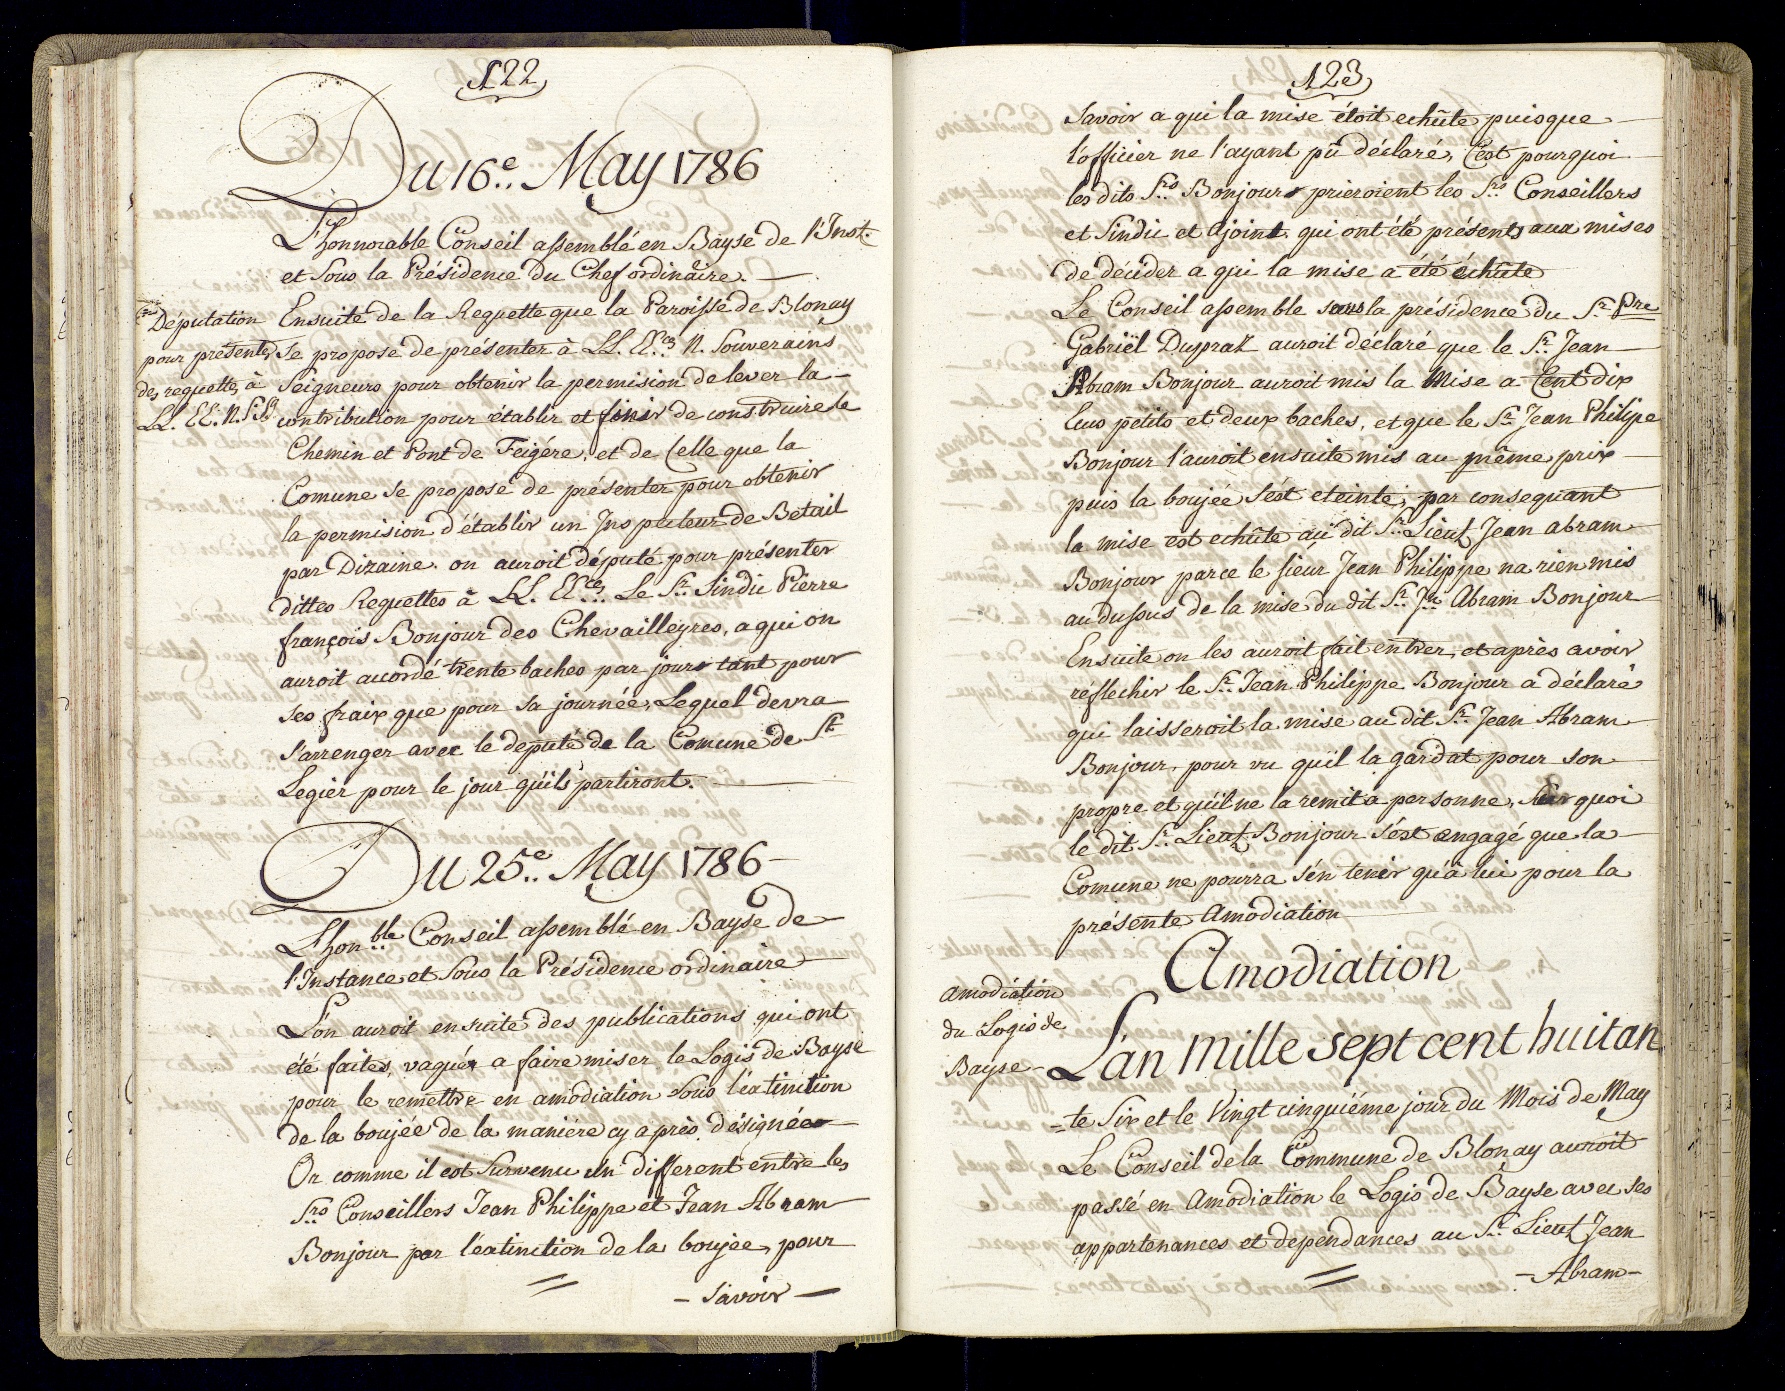 122
Du 16e. May 1786
L'honnorable Conseil assemblé en Bayse de l'Inst.ce
et Sous la Présidence du Chef ordinaire. —
Députation
pour presenter
des requettes à
LL. EE. N. S.rs
Ensuite de la Requette que la Paroisse de Blonay
se propose de présenter à LL. EE.ces N. Souverains
Seigneurs pour obtenir la permision de lever la —
contribution pour établir et finir de construire le
Chemin et Pont de Feigére, et de Celle que la
Comune se propose de présenter pour obtenir
la permision d'établir un Inspecteur de Betail
par Dizaine. on auroit député pour présenter
dittes Requettes à LL. EE.ces Le Sr. Sindic Pierre
françois Bonjour des Chevailleyres, a qui on
auroit accordé trente baches par jour tant pour
ses fraix que pour sa journée, Lequel devra
s'arrenger avec le deputé de la Comune de St.
Legier pour le jour qu'ils partiront. —
Du 25e. May 1786 —
L'hon.ble Conseil assemblé en Bayse de
l'Instance et Sous la Présidence ordinaire
L'on auroit ensuite des publications qui ont
été faites, vaguér a faire miser le Logis de Bayse
pour le remettre en amodiation sous l'extinction
de la boujée de la maniére cy après désignée
Or comme il est Survenu un different entre les
Srs. Conseillers Jean Philippe et Jean Abram
Bonjour par l'extinction de la boujee, pour
— Savoir —
123
Savoir a qui la mise étoit echûte puisque —
l'officier ne l'ayant pû déclaré, C'est pourquoi
les dits Srs. Bonjour prieroient les Srs. Conseillers
et Sindic et Ajoint qui ont été présents aux mises
de décider a qui la mise a été échûte
Le Conseil assemble sous la présidence du Sr. Pre
Gabriël Dupraz auroit déclaré que le Sr. Jean —
Abram Bonjour auroit mis la Mise a Cent dix
Ecus petits et deux baches, et que le Sr. Jean Philipe
Bonjour l'auroit ensuite mis au même prix —
puis la boujée s'ést eteinte, par consequant
la mise est echûte au dit Sr. Lieut. Jean abram
Bonjour parce le sieur Jean Philippe na rien mis
au dussus de la mise du dit Sr. Jn. Abram Bonjour
Ensuite on les auroit fait entrer, et après avoir
réflechir le Sr. Jean Philippe Bonjour a déclaré
qui laisseroit la mise au dit Sr. Jean Abram
Bonjour, pour vu qu'il la gardat pour son —
propre et qu'il ne la remit a personne, Sur quoi
le dit Sr. Lieut. Bonjour s'ést engagé que la —
Comune ne pourra s'én tenir qu'à lui pour la
présente Amodiation
Amodiation
amodiation
du Logis de
Bayse —
L'an mille sept cent huitan
=te Six et le Vingt cinquiéme jour du Mois de May
Le Conseil de la Commune de Blonay auroit
passé en Amodiation le Logis de Bayse avec ses
appartenances et dependances au Sr. Lieut. Jean
— Abram —